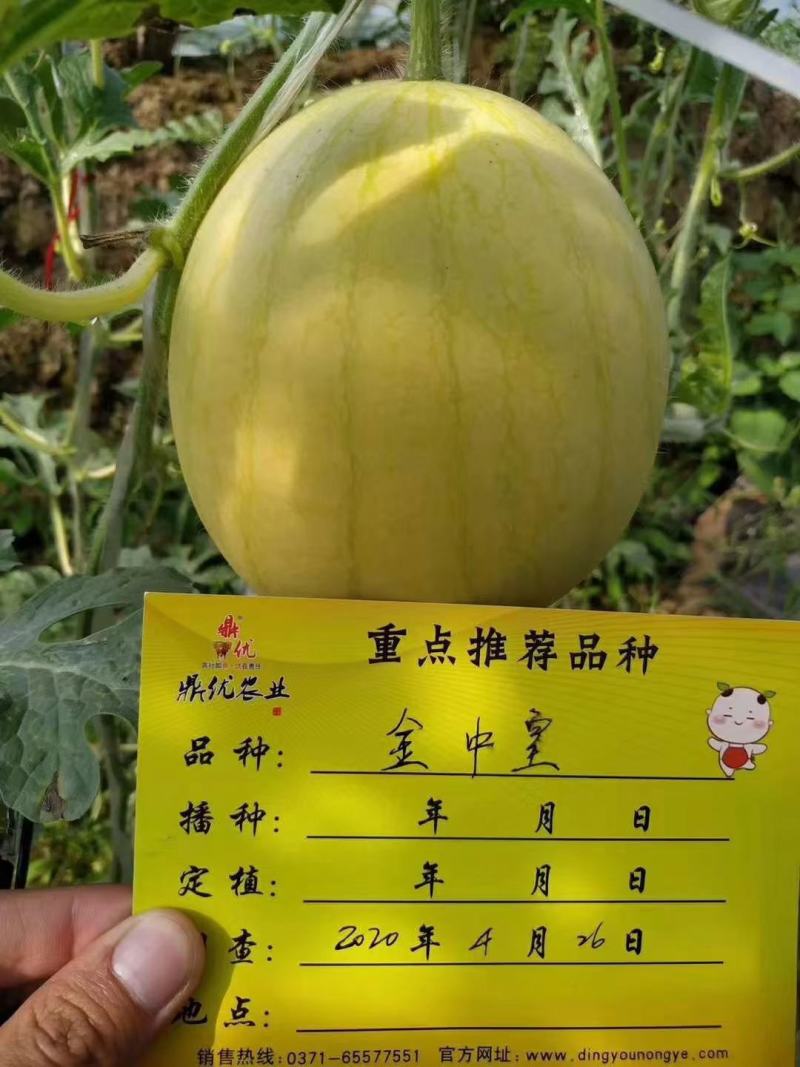 鼎优
鼎优农业
重点推荐品种
品种：金中皇
播种： 年 月 日
定植： 年 月 日
查：2020年 4月 26日
地点：
销售热线：0371-65577551 官方网址：www.dingyounongye.com